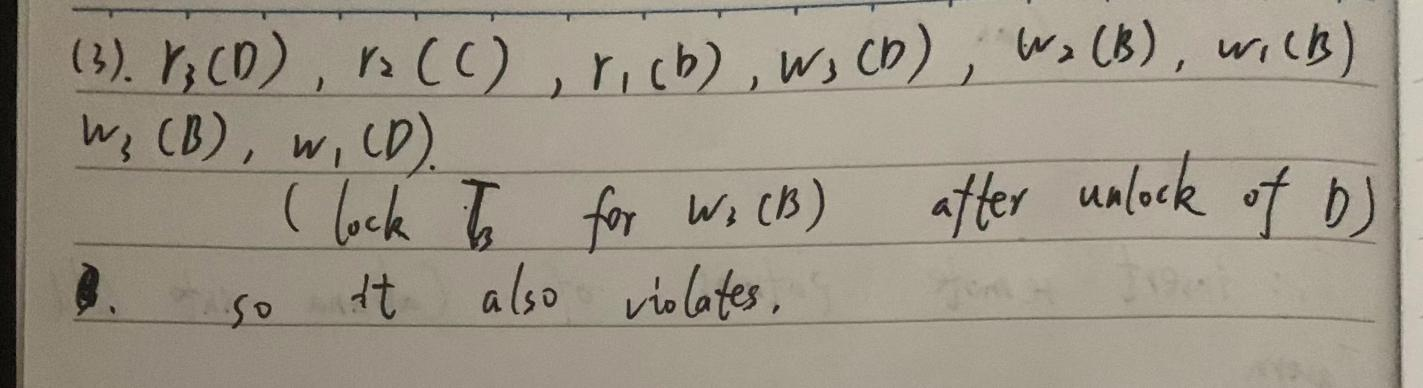 (3). r₃(D), r₂(C), r₁(b), w₃(D), w₂(B), w₁(B)
w₃(B), w₁(D).
(lock T₃ for w₃(B) after unlock of D)
so it also violates.